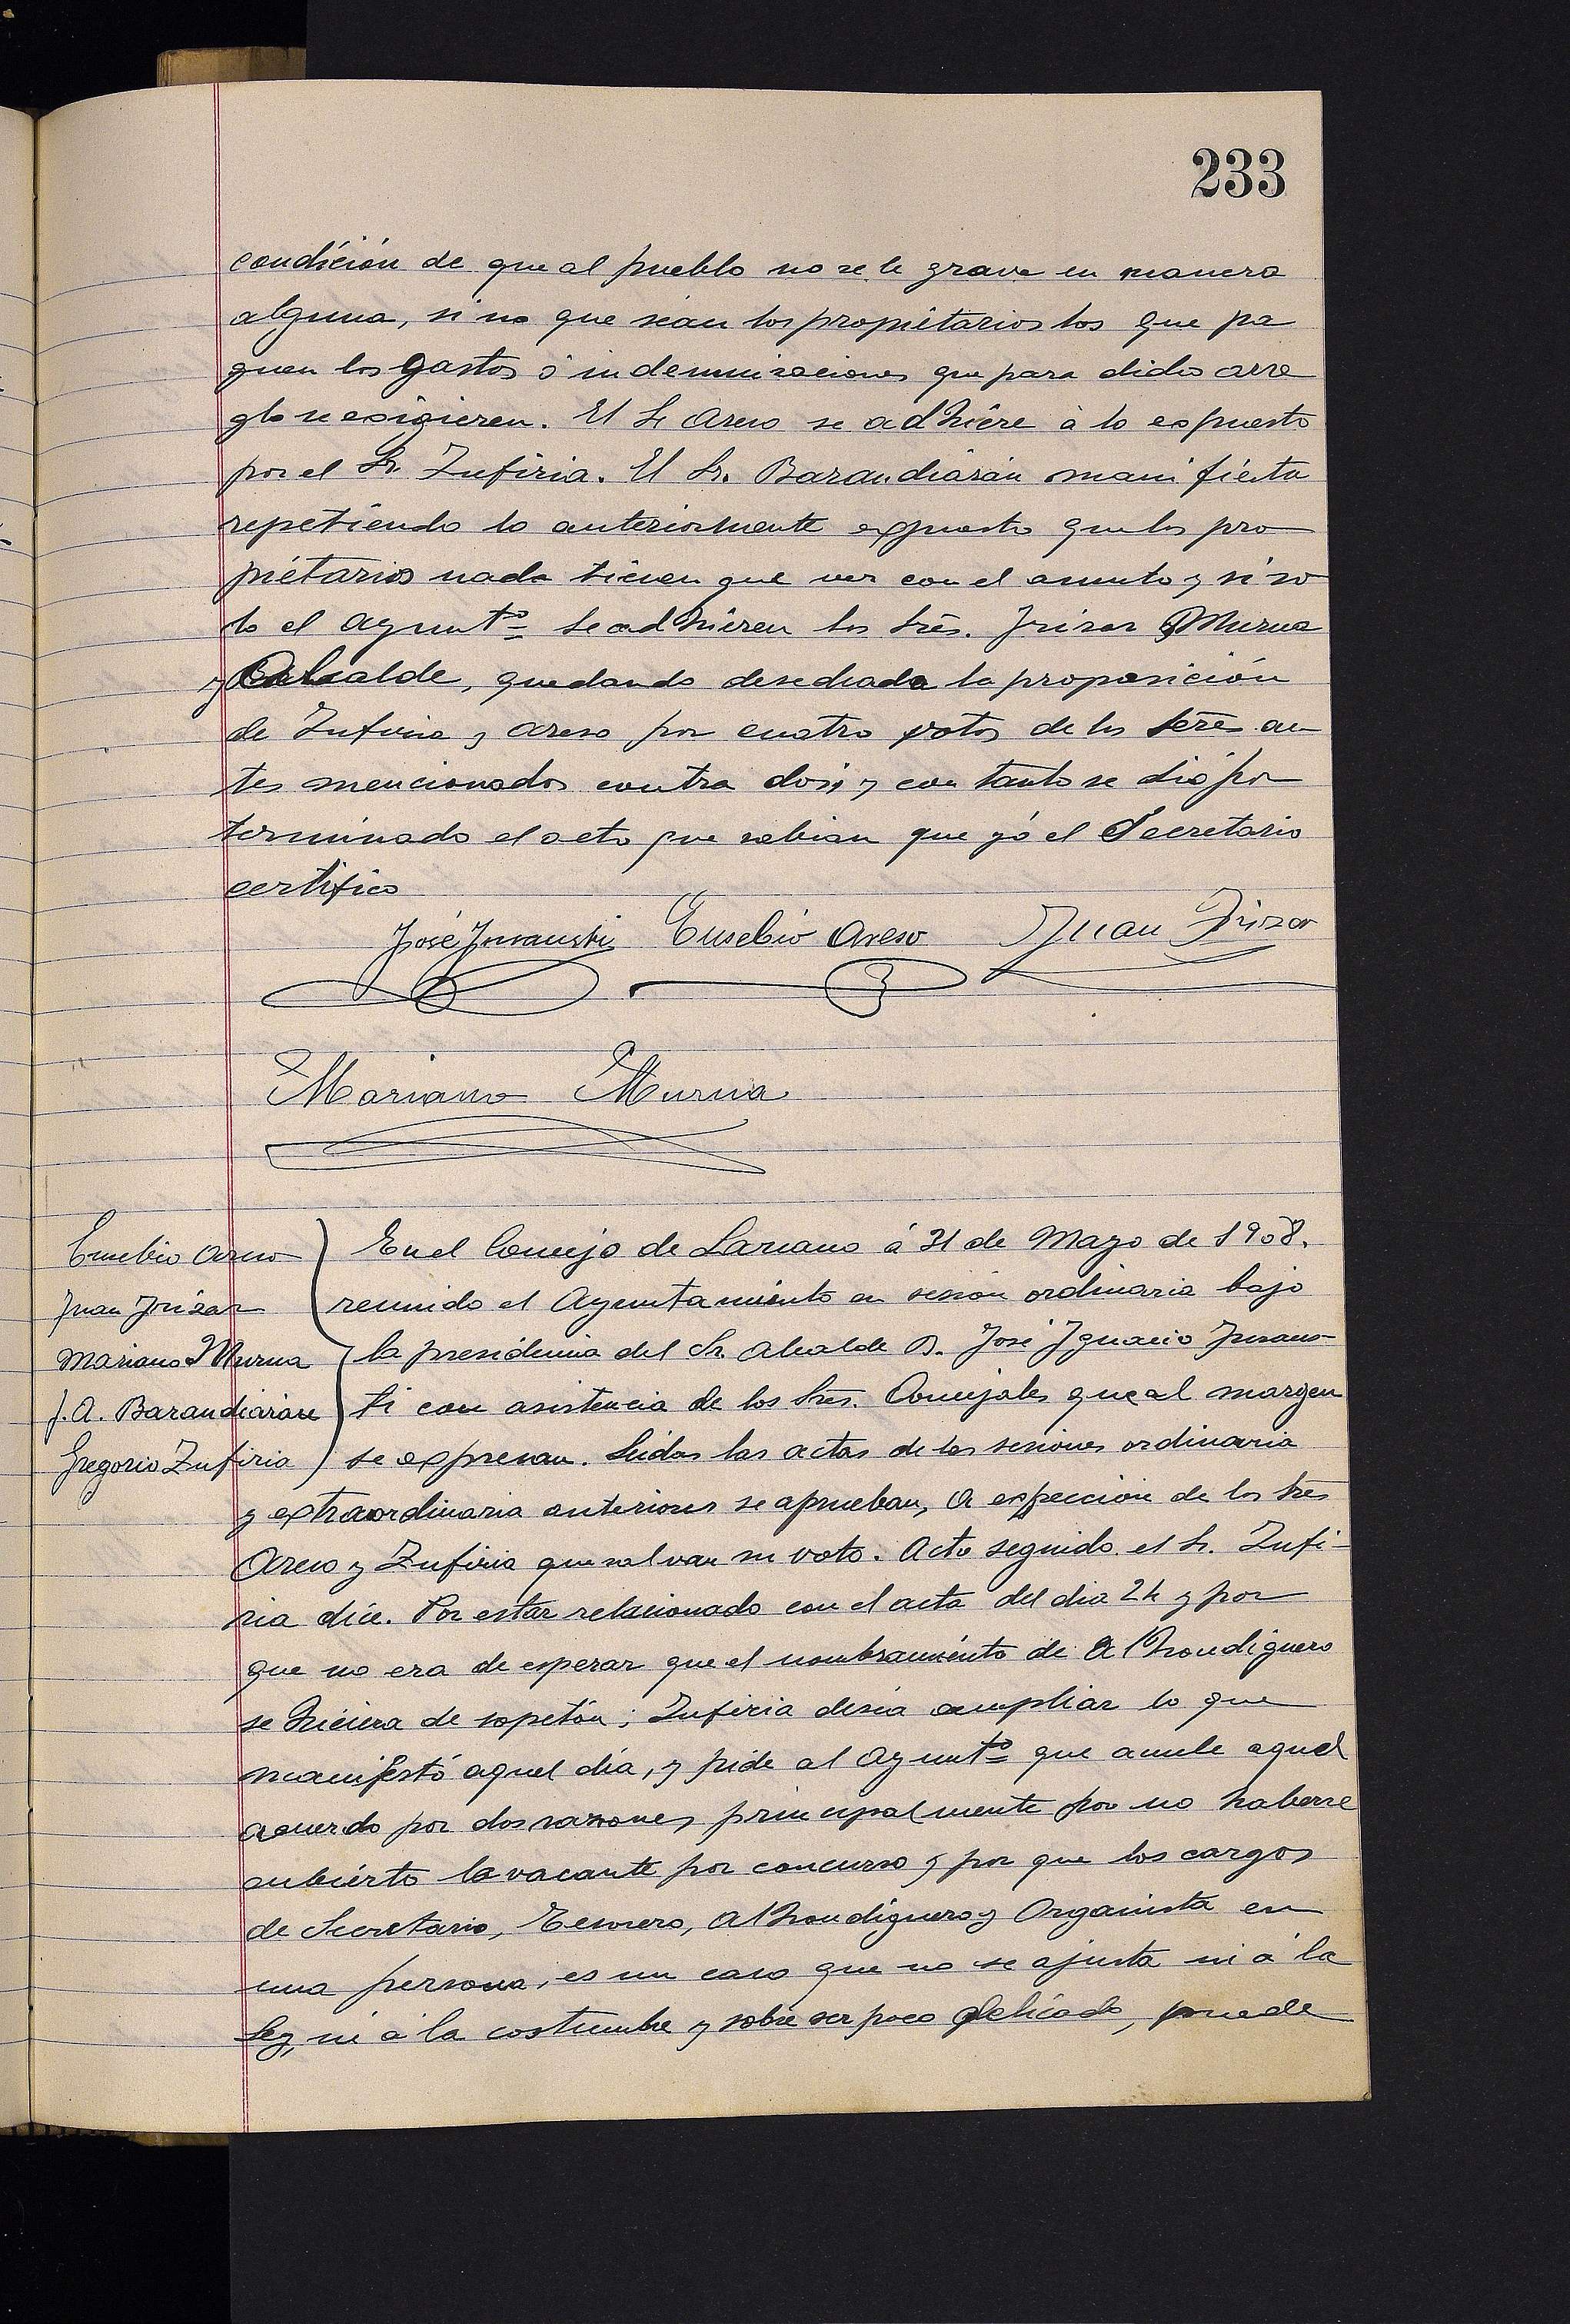 233
condición de que al pueblo no se le grave en manera
alguna, si no que sean los propietarios los que pa
guen los gastos ó indemnizaciones que para dicho arre
glo se exigieren. El Sr Areso se adhiere á lo expuesto
por el Sr. Zufiria. El Sr. Barandiarán manifiesta
repetiendo lo anteriormente expuesto que los pro
pietarios nada tienen que ver con el asunto y si so
lo el Ayuntº Se adhieren los Srēs. Irizar Murua
y Alcalde, quedando desechada la proposición
de Zufiria y Areso por cuatro votos de los Srēs an
tes mencionados contra dos, y con tanto se dió por
terminado el acto que rubrican que yó el Secretario
certifico
José Insausti Eusebio Areso Juan Irizar
Mariano Murua
Eusebio Areso
Juan Irizar
Mariano Murua
J. A. Barandiarán
Gregorio Zufiria
En el Concejo de Lazcano á 31 de Mayo de 1908.
reunido el Ayuntamiento en sesión ordinaria bajo
la presidencia del Sr. Alcalde D. José Ignacio Insaus-
ti con asistencia de los Srēs. Concejales que al margen
se expresan. Leidas las actas de las sesiones ordinaria
y extraordinaria anteriores se aprueban, á expección de los Srēs
Areso y Zufiria que salvan su voto. Acto seguido el Sr. Zufi-
ria dice. Por estar relacionado con el acta del dia 24 y por
que no era de esperar que el nombramiento de Alhondiguero
se hiciera de sopetón; Zufiria desea ampliar lo que
manifestó aquel día, y pide al Ayuntº que anule aquel
acuerdo por dos razones, principalmente por no haberse
cubierto la vacante por concurso y por que los cargos
de Secretario, Tesorero, Alhondiguero y Organista en
una persona, es un caso que no se ajusta ni á la
Ley, ni á la costumbre y sobre ser poco delicado, puede